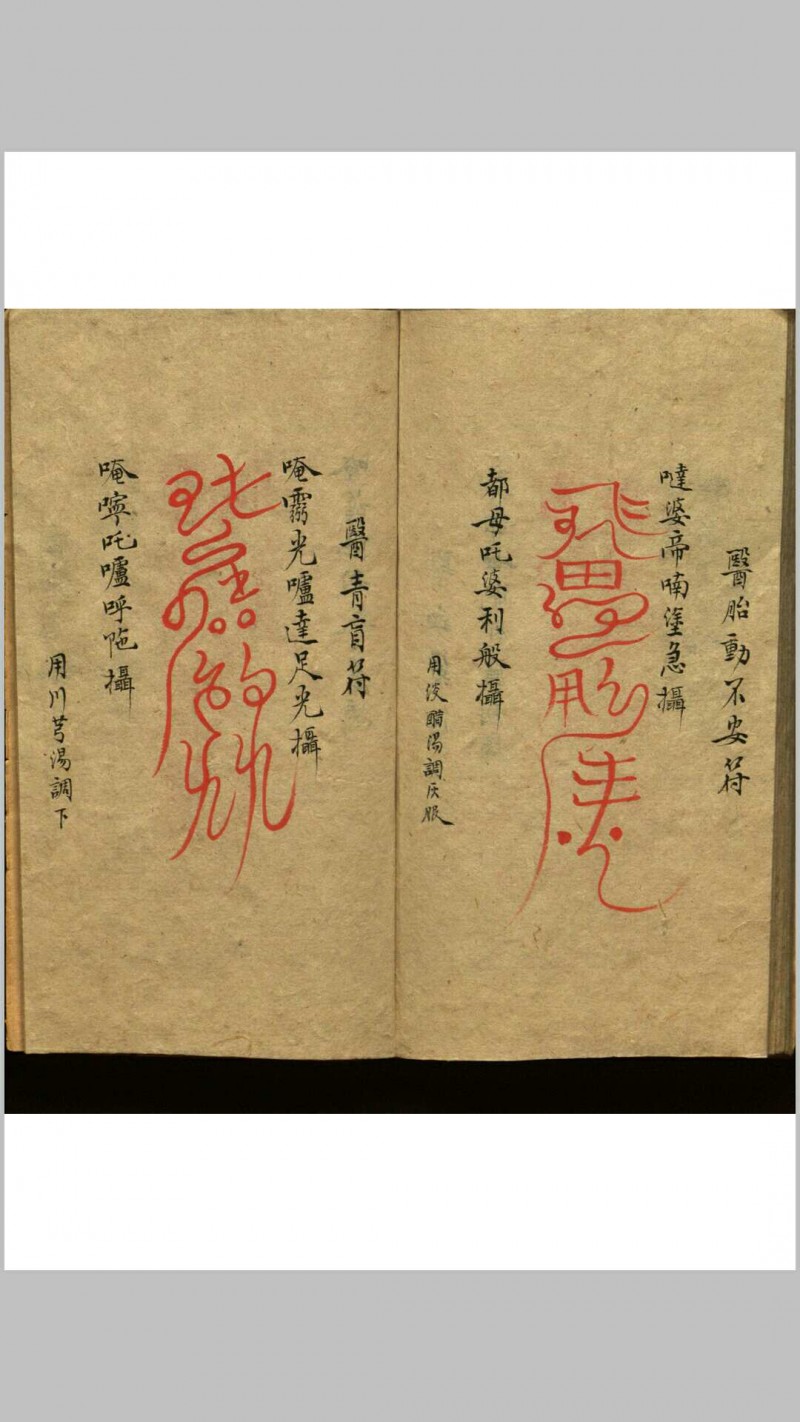 醫胎動不安符
噠婆帝喃塗急攝
都母吒婆利般攝
用淡醋湯調灰服
醫青盲符
唵霧光嚧達足光攝
唵嚀吒嚧呼陁攝
用川芎湯調下